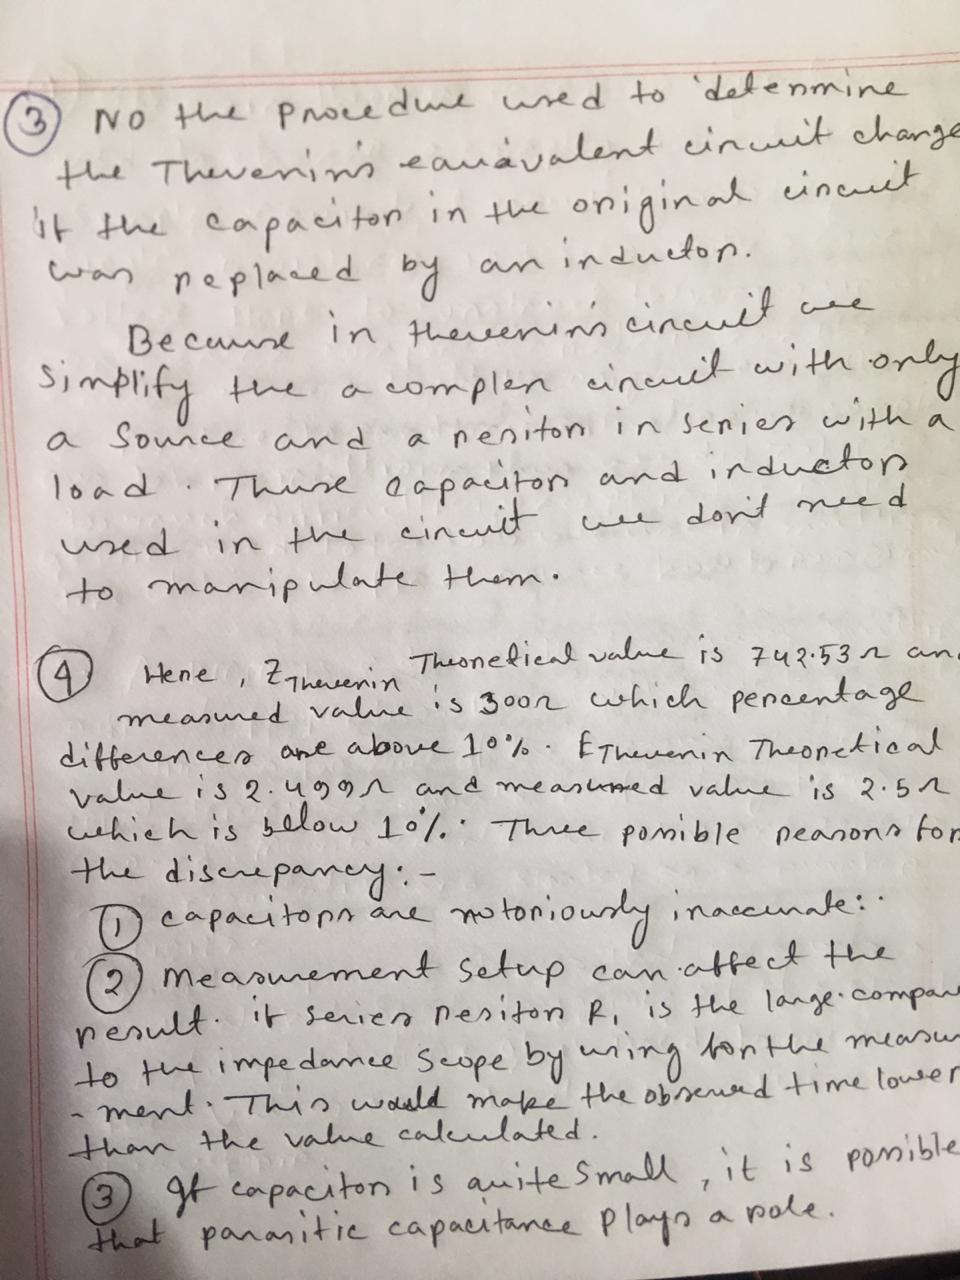 ③ No the procedure used to determine
the Thevenin's equavalent circuit change
if the capacitor in the original circuit
was replaced by an inductor.
Because in thevenin's circuit we
simplify the a complex circuit with only
a source and a resitor in series with a
load. Thuse capacitors and inductors
used in the circuit we don't need
to manipulate them.
④ Here, ZThevenin Theoretical value is 742.53Ω an
measured value is 300Ω which percentage
differences are above 10%. EThevenin Theoretical
value is 2.499Ω and measured value is 2.5Ω
which is below 10%. Three possible reasons for
the discrepancy:-
① capacitors are notoriously inaccurate:.
② Measurement setup can affect the
result. if series resitor R1 is the large compare
to the impedance scope by using for the measu
-ment. This would make the observed time lower
than the value calculated.
③ If capacitor is quite small, it is possible
that parasitic capacitance plays a role.